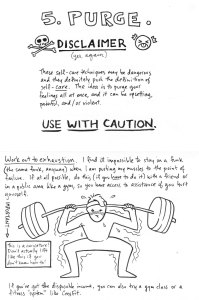 5. PURGE.
DISCLAIMER
(yes, again)
These self-care techniques may be dangerous
and they definitely push the definition of
self-care. The idea is to purge your
feelings all at once, and it can be upsetting,
painful, and/or violent.
USE WITH CAUTION.
Work out to exhaustion. I find it impossible to stay in a funk
(the same funk, anyway) when I am putting my muscles to the point of
failure. If at all possible, do this (if you have to do it) with a friend or
in a public area like a gym, so you have access to assistance if you hurt
yourself.
IMPORTANT
This is a caricature!
Don't actually lift
like this if you
don't know how to!
If you've got the disposable income, you can also try a gym class or a
fitness "system" like CrossFit.